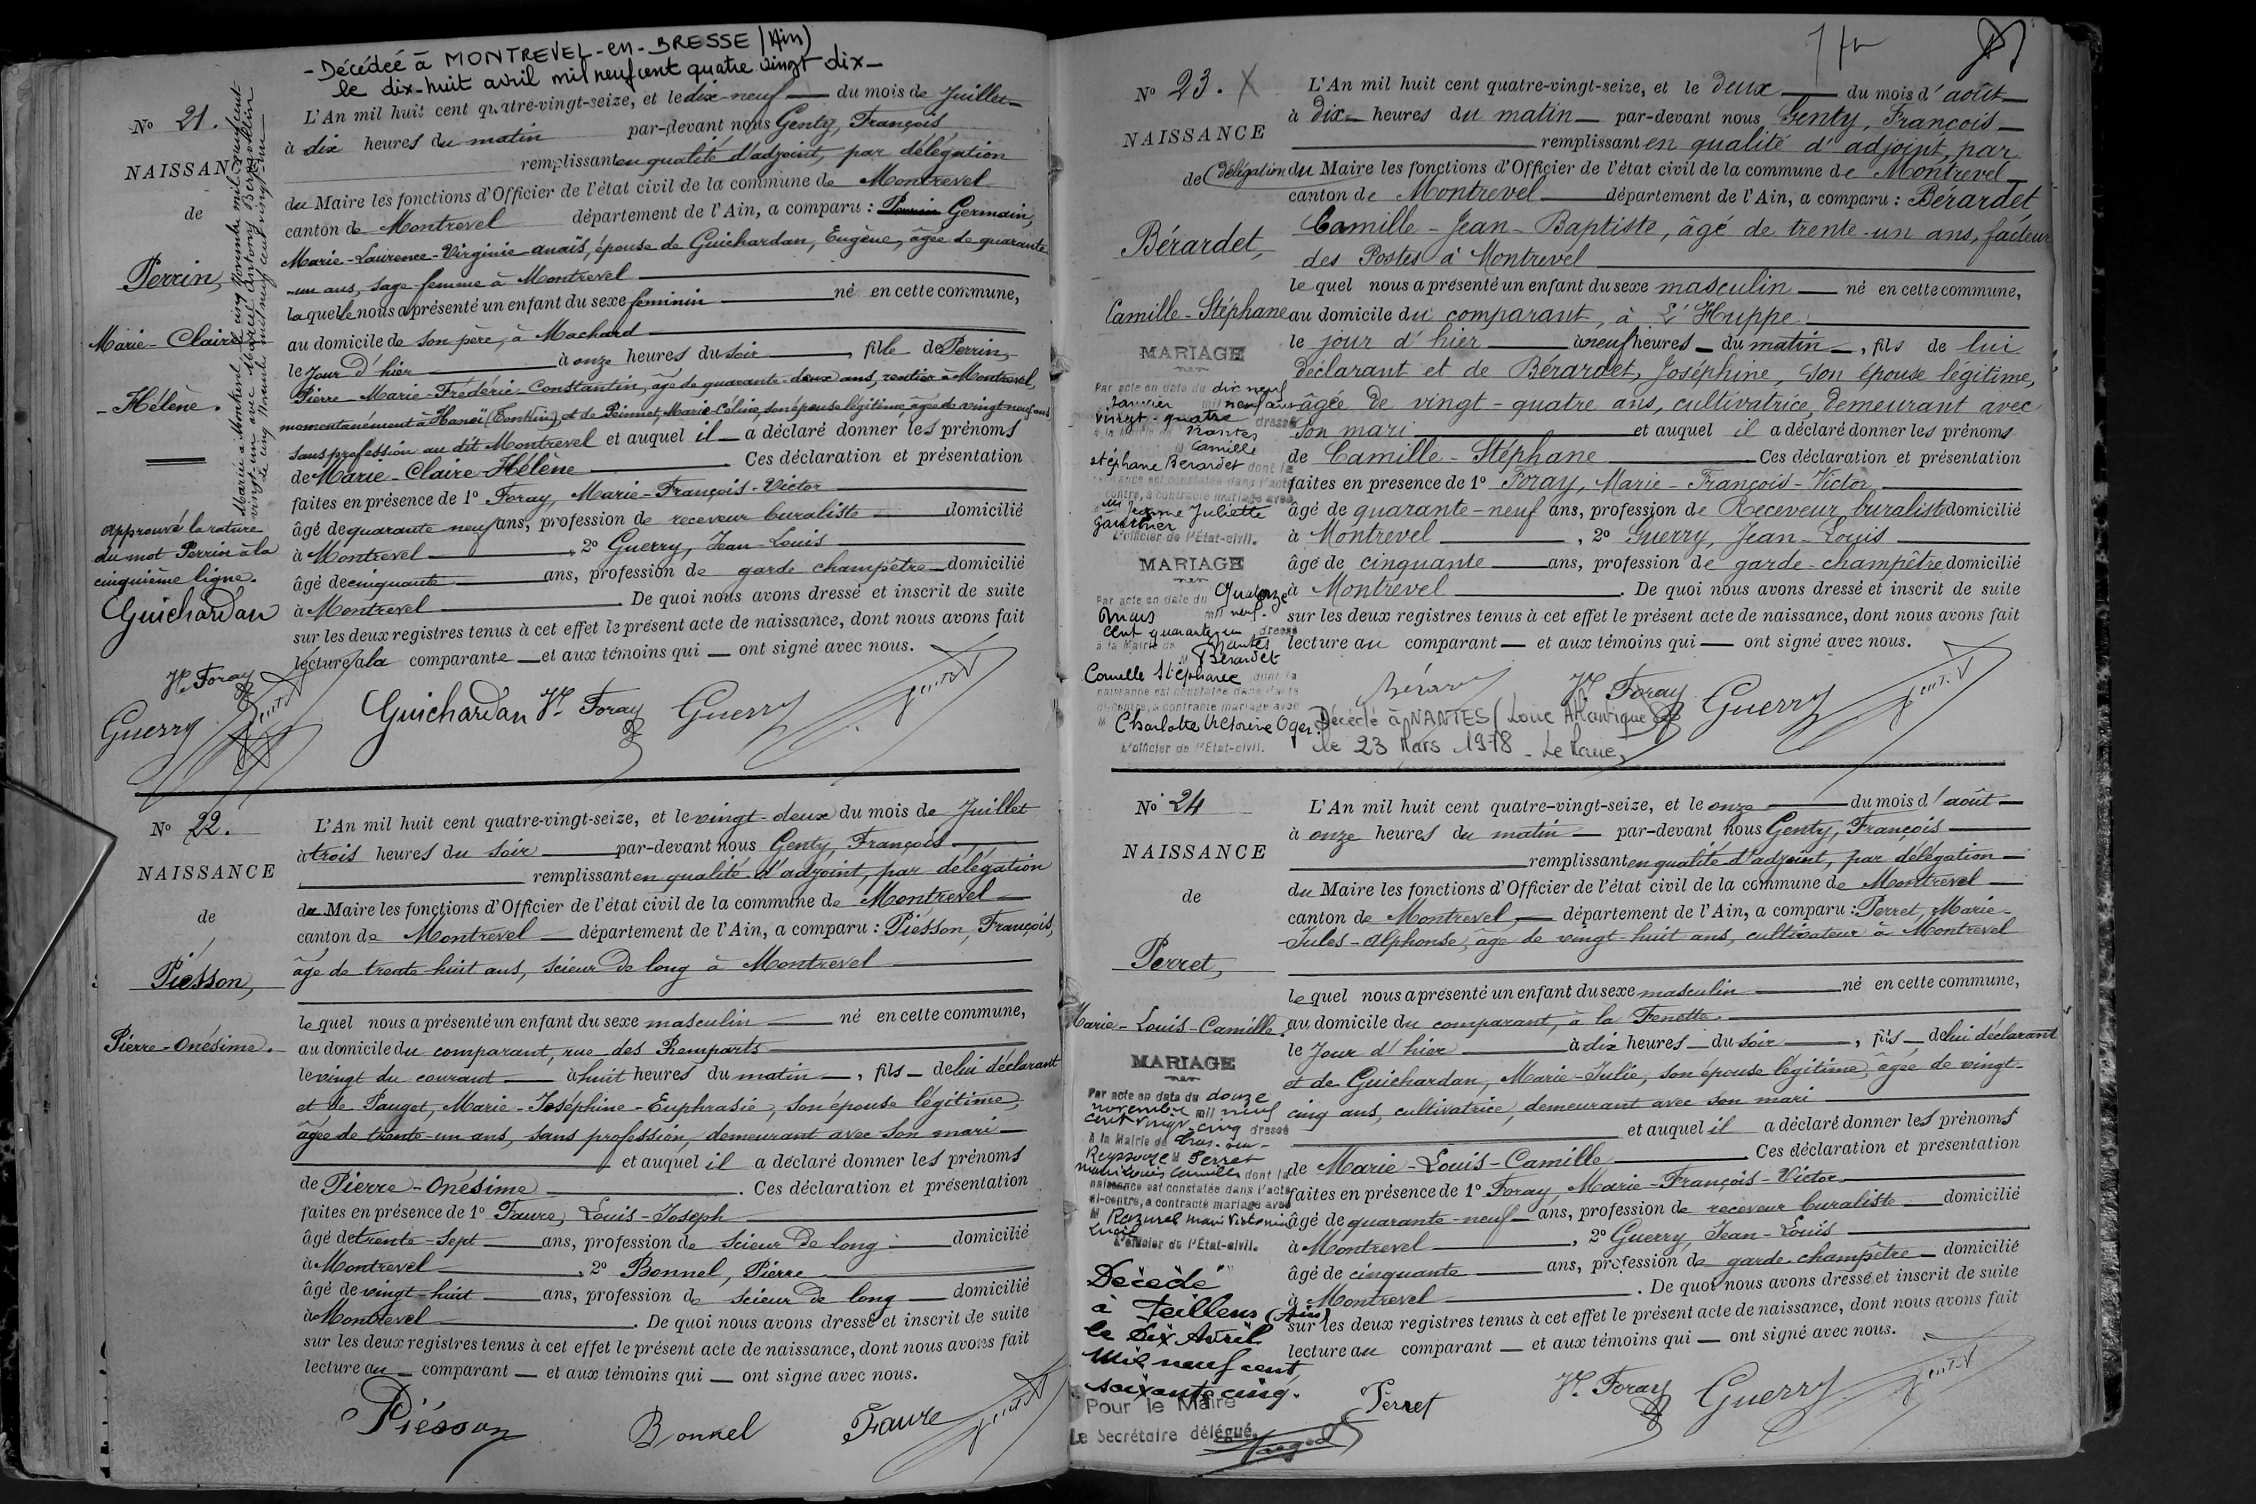 - Décédée à MONTREVEL-en-BRESSE (Ain)
le dix-huit avril mil neuf cent quatre vingt dix -
No 21.
NAISSAN
de
Perrin,
Marie-Claire
-Hélène.
Mariée à Montrevel le cinq Novembre mil neuf cent
vingt-un avec Marcel Antony
Le cinq Novembre mil neuf cent vingt-un
Approuvé la rature
du mot Perrin à la
cinquième ligne.
Guichardan
Vr Foray
Guerry
L'An mil huit cent quatre-vingt-seize, et le dix-neuf du mois de Juillet
à dix heures du matin par-devant nous Genty, François
remplissant en qualité d'adjoint, par délégation
du Maire les fonctions d'Officier de l'état civil de la commune de Montrevel
canton de Montrevel département de l'Ain, a comparu : Perrin Germain,
Marie-Laurence-Virginie-Anaïs, épouse de Guichardan, Eugène, âgée de quarante
-un ans, sage-femme à Montrevel
laquelle nous a présenté un enfant du sexe féminin né en cette commune,
au domicile de son père, à Machard
le jour d'hier à onze heures du soir, fille de Perrin,
Pierre-Marie-Frédéric-Constantin, âgé de quarante-deux ans, rentier à Montrevel,
momentanément à Hanoï (Tonkin), et de Peinnet, Marie-Céline, son épouse légitime, âgée de vingt-neuf ans
sans profession au dit Montrevel et auquel il a déclaré donner les prénoms
de Marie-Claire-Hélène. Ces déclaration et présentation
faites en présence de 1o Foray, Marie-François-Victor
âgé de quarante neuf ans, profession de receveur buraliste domicilié
à Montrevel, 2o Guerry, Jean-Louis
âgé de cinquante ans, profession de garde champêtre domicilié
à Montrevel. De quoi nous avons dressé et inscrit de suite
sur les deux registres tenus à cet effet le présent acte de naissance, dont nous avons fait
lecture à la comparante et aux témoins qui ont signé avec nous.
Guichardan Vr Foray Guerry Genty
No 22.
NAISSANCE
de
Piésson,
Pierre-Onésime.
L'An mil huit cent quatre-vingt-seize, et le vingt-deux du mois de Juillet
à trois heures du soir par-devant nous Genty, François
remplissant en qualité d'adjoint, par délégation
du Maire les fonctions d'Officier de l'état civil de la commune de Montrevel
canton de Montrevel département de l'Ain, a comparu : Piésson, François,
âgé de trente huit ans, scieur de long à Montrevel
lequel nous a présenté un enfant du sexe masculin né en cette commune,
au domicile du comparant, rue des Remparts
le vingt du courant à huit heures du matin, fils de lui déclarant
et de Pauget, Marie-Joséphine-Euphrasie, son épouse légitime,
âgée de trente-un ans, sans profession, demeurant avec son mari
et auquel il a déclaré donner les prénoms
de Pierre-Onésime. Ces déclaration et présentation
faites en présence de 1o Faure, Louis-Joseph
âgé de trente-sept ans, profession de scieur de long domicilié
à Montrevel, 2o Bonnel, Pierre
âgé de vingt-huit ans, profession de scieur de long domicilié
à Montrevel. De quoi nous avons dressé et inscrit de suite
sur les deux registres tenus à cet effet le présent acte de naissance, dont nous avons fait
lecture au comparant et aux témoins qui ont signé avec nous.
Piésson Bonnel Faure Genty
No 23. X
NAISSANCE
de
Bérardet,
Camille-Stéphane
MARIAGE
Par acte en date du dix neuf
Janvier mil neuf cent
vingt-quatre dressé
à la Mairie de Nantes
M Camille
Stéphane Bérardet dont la
naissance est constatée dans l'acte
ci-contre, a contracté mariage avec
Mlle Jeanne Juliette
Gauthier
L'officier de l'État-civil.
MARIAGE
Par acte en date du Quatorze
Mars mil neuf
cent quarante un dressé
à la Mairie de Nantes
M Bérardet
Camille Stéphane dont la
naissance est constatée dans l'acte
ci-contre, a contracté mariage avec
M Charlotte Victorine Oger.
L'officier de l'État-civil.
L'An mil huit cent quatre-vingt-seize, et le deux du mois d'août
à dix heures du matin par-devant nous Genty, François
remplissant en qualité d'adjoint, par
délégation du Maire les fonctions d'Officier de l'état civil de la commune de Montrevel
canton de Montrevel département de l'Ain, a comparu : Bérardet
Camille-Jean-Baptiste, âgé de trente-un ans, facteur
des Postes à Montrevel
lequel nous a présenté un enfant du sexe masculin né en cette commune,
au domicile du comparant, à L'Huppe
le jour d'hier à neuf heures du matin, fils de lui
déclarant et de Bérardet, Joséphine, son épouse légitime,
âgée de vingt-quatre ans, cultivatrice, demeurant avec
son mari et auquel il a déclaré donner les prénoms
de Camille-Stéphane Ces déclaration et présentation
faites en présence de 1o Foray, Marie-François-Victor
âgé de quarante-neuf ans, profession de Receveur buraliste domicilié
à Montrevel, 2o Guerry, Jean-Louis
âgé de cinquante ans, profession de garde-champêtre domicilié
à Montrevel. De quoi nous avons dressé et inscrit de suite
sur les deux registres tenus à cet effet le présent acte de naissance, dont nous avons fait
lecture au comparant et aux témoins qui ont signé avec nous.
Vr Foray Guerry Genty
Décédé à NANTES (Loire Atlantique)
le 23 Mars 1978 - Le Maire,
No 24
NAISSANCE
de
Perret,
Marie-Louis-Camille.
MARIAGE
Par acte en date du douze
novembre mil neuf
cent vingt-cinq dressé
à la Mairie de Cras-sur-
Reyssouze M Perret
Marie Louis Camille dont la
naissance est constatée dans l'acte
ci-contre, a contracté mariage avec
M Razurel Marie Victorine
L'officier de l'État-civil.
Décédé
à Foillens (Ain)
le Six Avril
Mil neuf cent
soixante cinq.
Pour le Maire
Le Secrétaire délégué,
L'An mil huit cent quatre-vingt-seize, et le onze du mois d'août
à onze heures du matin par-devant nous Genty, François
remplissant en qualité d'adjoint, par délégation
du Maire les fonctions d'Officier de l'état civil de la commune de Montrevel
canton de Montrevel, département de l'Ain, a comparu : Perret, Marie-
Jules-Alphonse, âgé de vingt-huit ans, cultivateur à Montrevel
lequel nous a présenté un enfant du sexe masculin né en cette commune,
au domicile du comparant, à la Frenette.
le jour d'hier à dix heures du soir, fils de lui déclarant
et de Guichardan, Marie-Julie, son épouse légitime, âgée de vingt-
cinq ans, cultivatrice, demeurant avec son mari
et auquel il a déclaré donner les prénoms
de Marie-Louis-Camille Ces déclaration et présentation
faites en présence de 1o Foray, Marie-François-Victor
âgé de quarante-neuf ans, profession de receveur buraliste domicilié
à Montrevel, 2o Guerry, Jean-Louis
âgé de cinquante ans, profession de garde-champêtre domicilié
à Montrevel. De quoi nous avons dressé et inscrit de suite
sur les deux registres tenus à cet effet le présent acte de naissance, dont nous avons fait
lecture au comparant et aux témoins qui ont signé avec nous.
Perret Vr Foray Guerry Genty